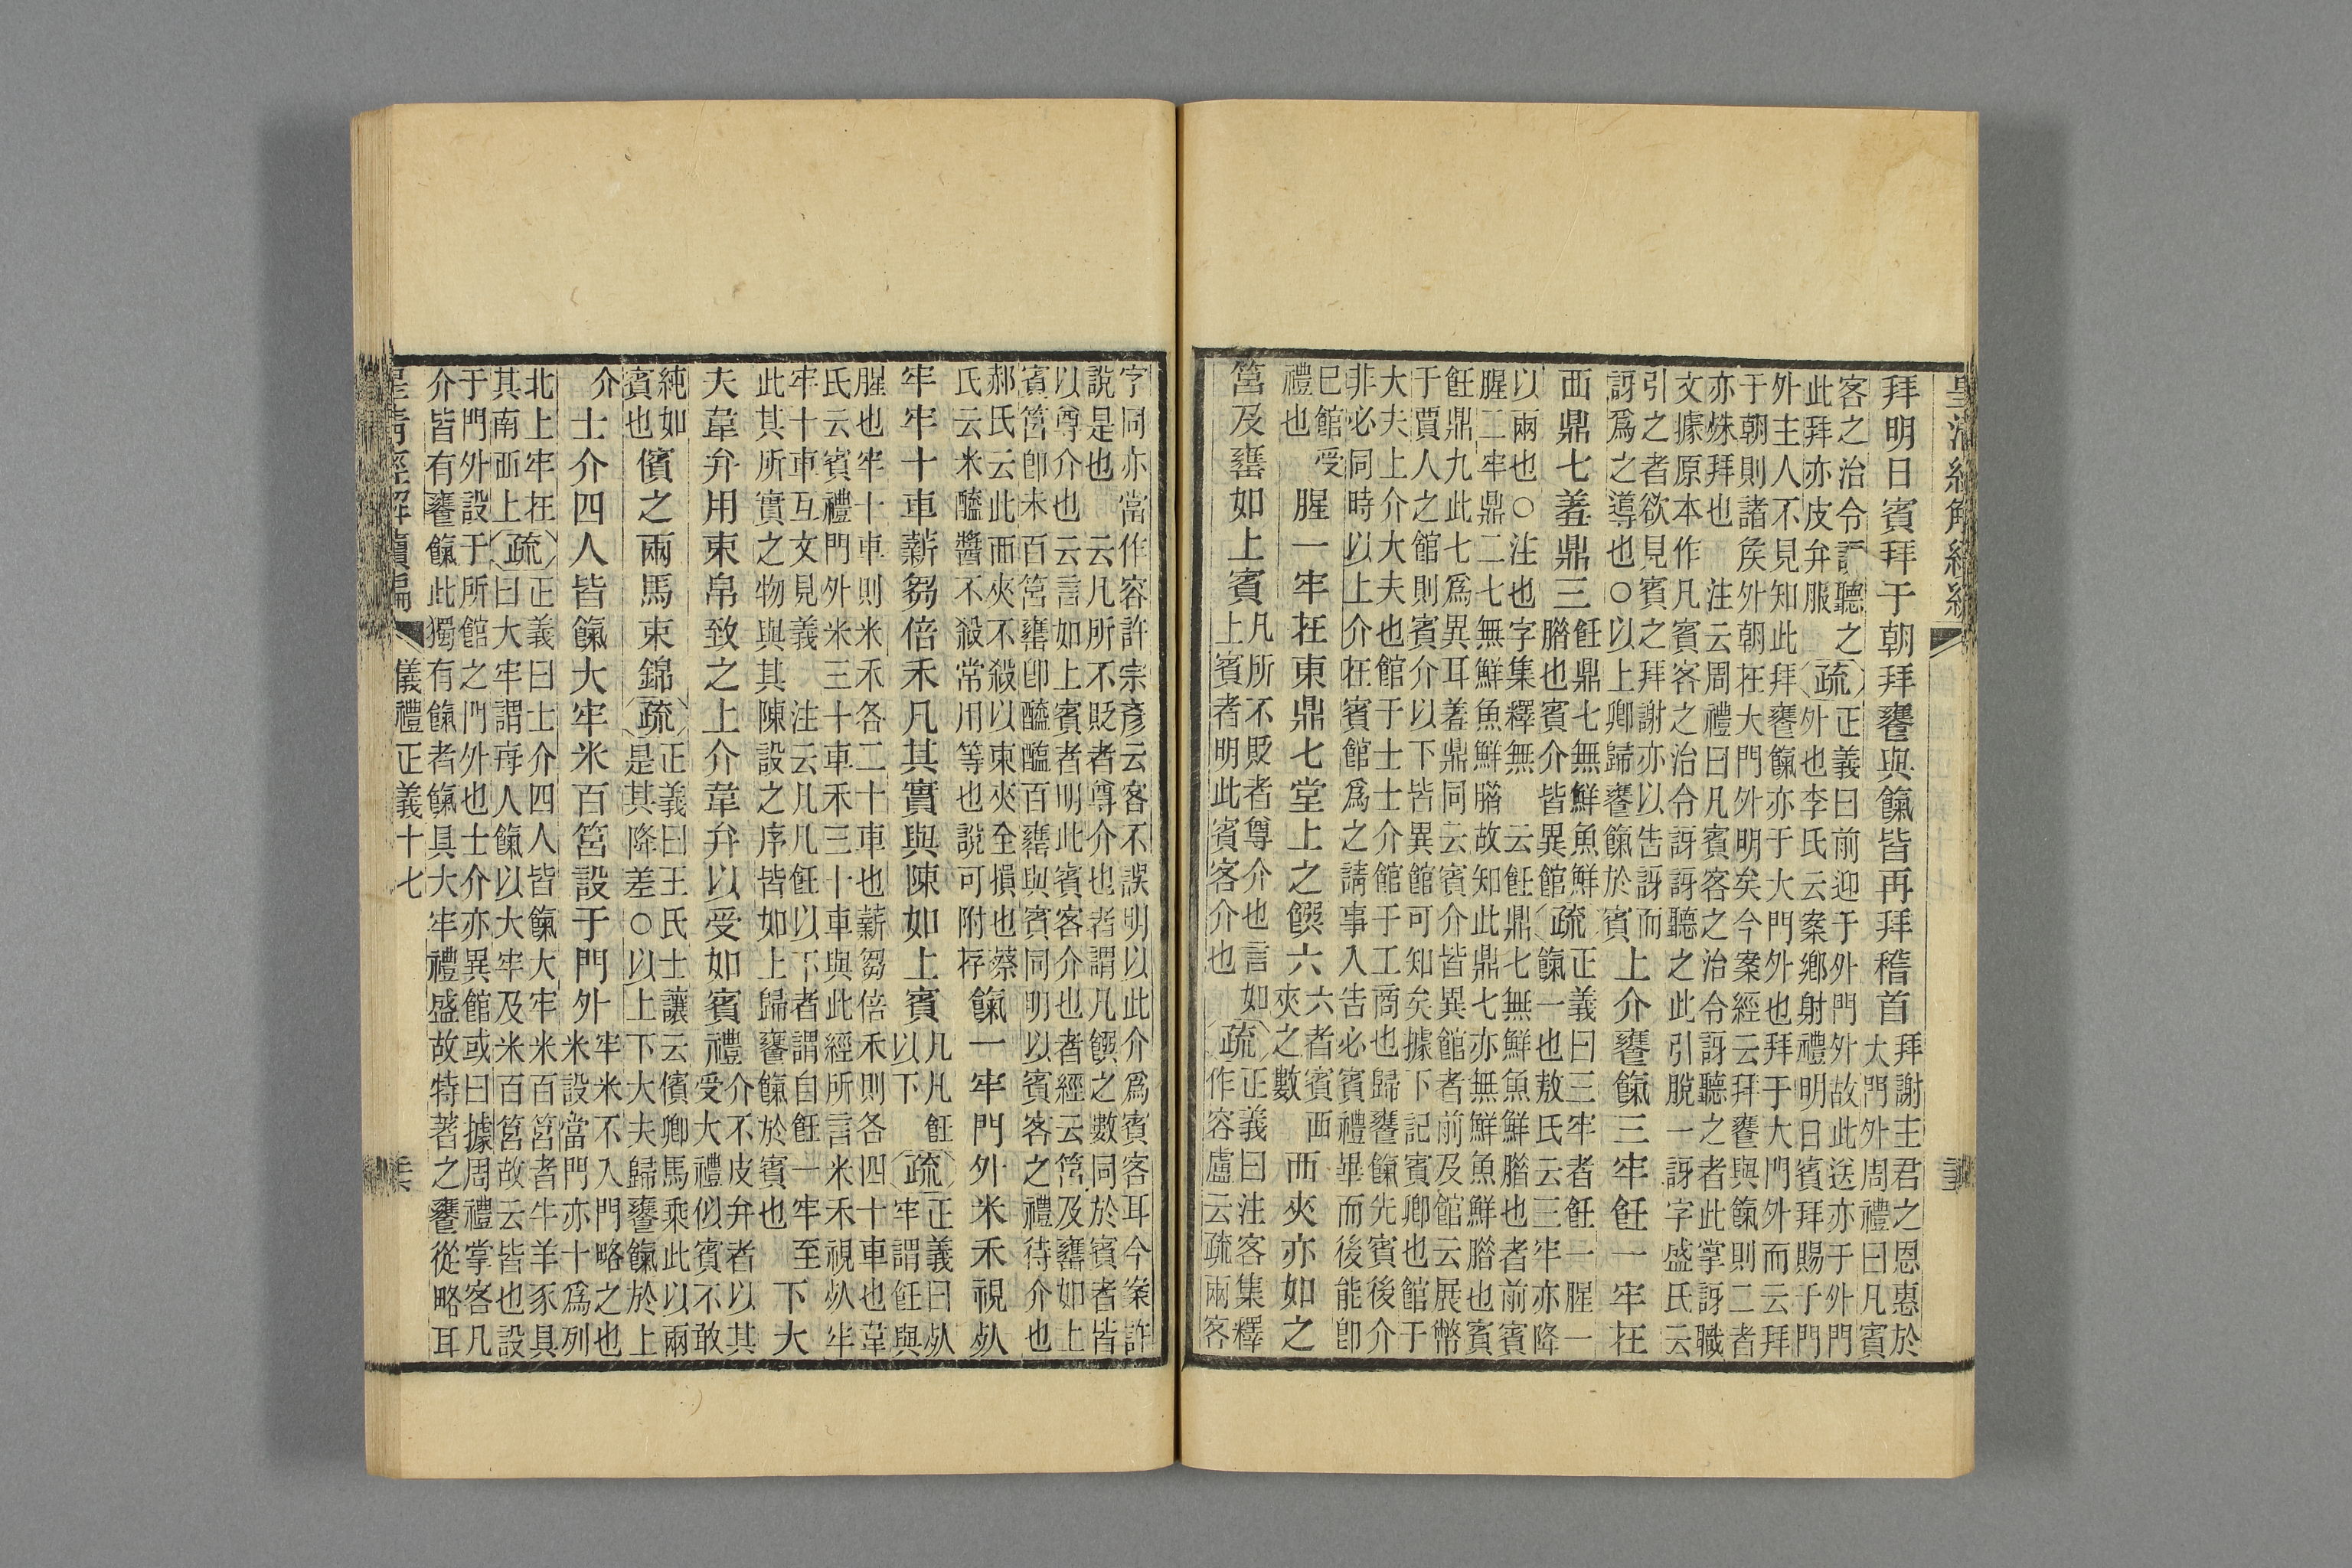 皇清經解續編
拜明日賓拜于朝拜饔與餼皆再拜稽首
拜謝主君之恩惠於
大門外周禮曰凡賓
客之治令訝聽之
此拜亦皮弁服
疏
正義曰前迎于外門外故此送亦于外門
外也李氏云案鄉射禮明日賓拜賜于門
外主人不見知此拜饔餼亦于大門外也拜于大門外而云拜
于朝則諸矦外朝在大門外明矣今案經云拜饔與餼則二者
亦殊拜也　注云周禮曰凡賓客之治令訝聽之者此掌訝職
文據原本作凡賓客之治令訝訝聽之此引脫一訝字盛氏云
引之者欲見賓之拜謝亦以告訝而
訝爲之導也○以上卿歸饔餼於賓
上介饔餼三牢飪一牢在
西鼎七羞鼎三
飪鼎七無鮮魚鮮
腊也賓介皆異館
疏
正義曰三牢者飪一腥一
餼一也敖氏云三牢亦降
以兩也○注也字集釋無　云飪鼎七無鮮魚鮮腊也者前賓
腥二牢鼎二七無鮮魚鮮腊故知此鼎七亦無鮮魚鮮腊也賓
飪鼎九此七爲異耳羞鼎同云賓介皆異館者前及館云展幣
于賈人之館則賓介以下皆異館可知矣據下記賓卿也館于
大夫上介大夫也館于士士介館于工商也歸饔餼先賓後介
非必同時以上介在賓館爲之請事入告必賓禮畢而後能卽
已館受
禮也
腥一牢在東鼎七堂上之饌六
六者賓西
夾之數
西夾亦如之
筥及罋如上賓
凡所不貶者尊介也言如
上賓者明此賓客介也
疏
正義曰注客集釋
作容盧云疏兩客
字同亦當作容許宗彥云客不誤明以此介爲賓客耳今案許
說是也　云凡所不貶者尊介也者謂凡饌之數同於賓者皆
以尊介也云言如上賓者明此賓客介也者經云筥及罋如上
賓筥卽米百筥罋卽醯醢百罋與賓同明以賓客之禮待介也
郝氏云此西夾不殺以東夾全損也蔡
氏云米醯醬不殺常用等也說可附存
餼一牢門外米禾視死
牢牢十車薪芻倍禾凡其實與陳如上賓
凡凡飪
以下
疏
正義曰死
牢謂飪與
腥也牢十車則米禾各二十車也薪芻倍禾則各四十車也韋
氏云賓禮門外米三十車禾三十車與此經所言米禾視死牢
牢十車互文見義　注云凡凡飪以下者謂自飪一牢至
此其所實之物與其陳設之序皆如上歸饔餼於賓也
下大
夫韋弁用束帛致之上介韋弁以受如賓禮
介不皮弁者以其
受大禮似賓不敢
純如
賓也
儐之兩馬束錦
疏
正義曰王氏士讓云儐卿馬乘此以兩
是其降差○以上下大夫歸饔餼於上
介
士介四人皆餼大牢米百筥設于門外
牢米不入門略之也
米設當門亦十爲列
北上牢在
其南西上
疏
正義曰士介四人皆餼大牢米百筥者牛羊豕具
曰大牢謂每人餼以大牢及米百筥故云皆也設
于門外設于所館之門外也士介亦異館或曰據周禮掌客凡
介皆有饔餼此獨有餼者餼具大牢禮盛故特著之饔從略耳
皇清經解續編
儀禮正義十七